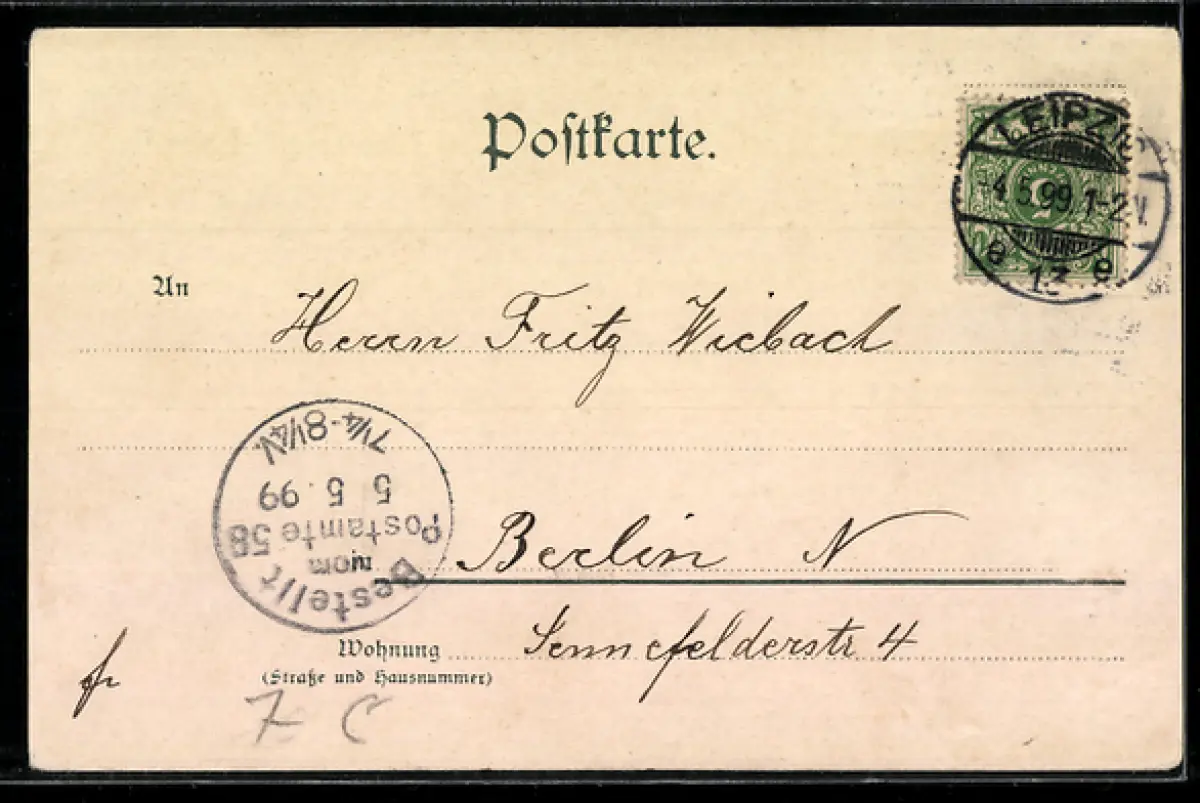 Postkarte.
LEIPZIG
-4.5.99.1-2N.
13
e e
5
An
Herrn Fritz Wiebach
7¼-8¼V.
5 5. 99
Postamte 58
vom
Bestellt
Berlin N
Wohnung Sennefelderstr 4
(Straße und Hausnummer)
fr
7 C